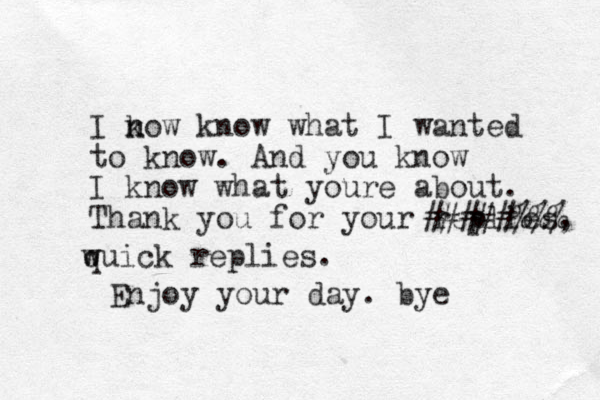 I now know what I wanted
to know. And you know
I know what youre about.
Thank you for your replies.
quick replies.
Enjoy your day. bye